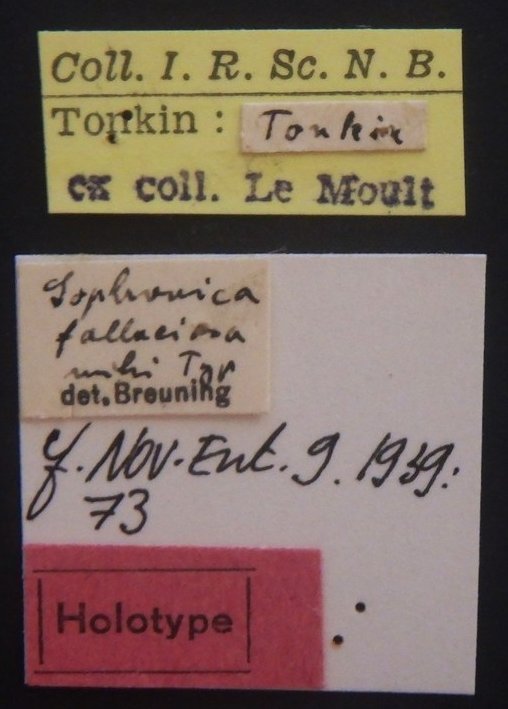 Coll. I. R. Sc. N. B.
Tonkin : Tonkin
ex coll. Le Moult
Sophronica
fallaciosa
mihi Typ
det. Breuning
cf. Nov. Ent. 9. 1939:
73
Holotype